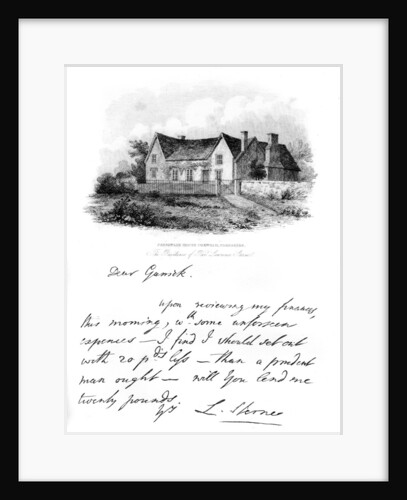 (The Residence of Revd. Lawrence Sterne)
Dear Garrick.
upon reviewing my finances,
this morning, wth. some unforseen
expences — I find I should set out
with 20 pds. less — than a prudent
man ought — will You lend me
twenty pounds.
Yrs. L. Sterne